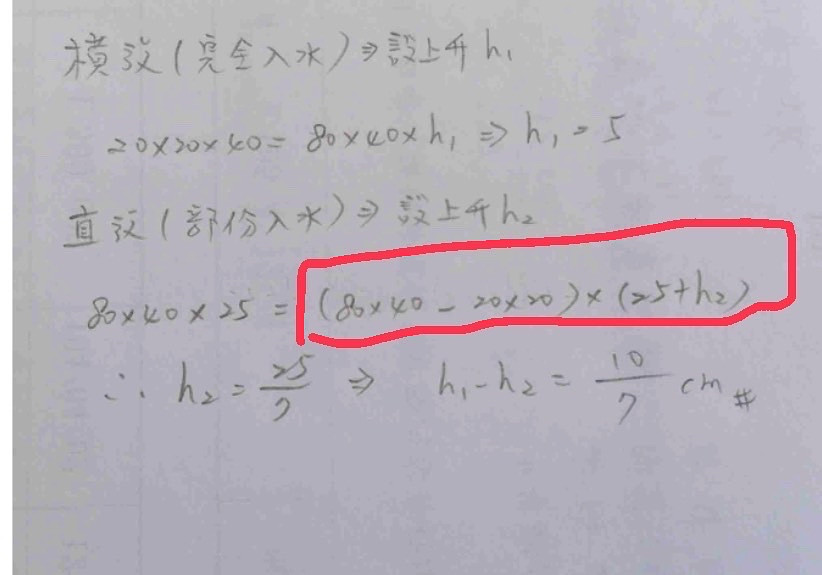 橫放(完全入水)⇒設上升h₁
20×20×40=80×40×h₁⇒h₁=5
直放(部份入水)⇒設上升h₂
80×40×25=(80×40-20×20)×(25+h₂)
∴h₂=25/7⇒h₁-h₂=10/7 cm#